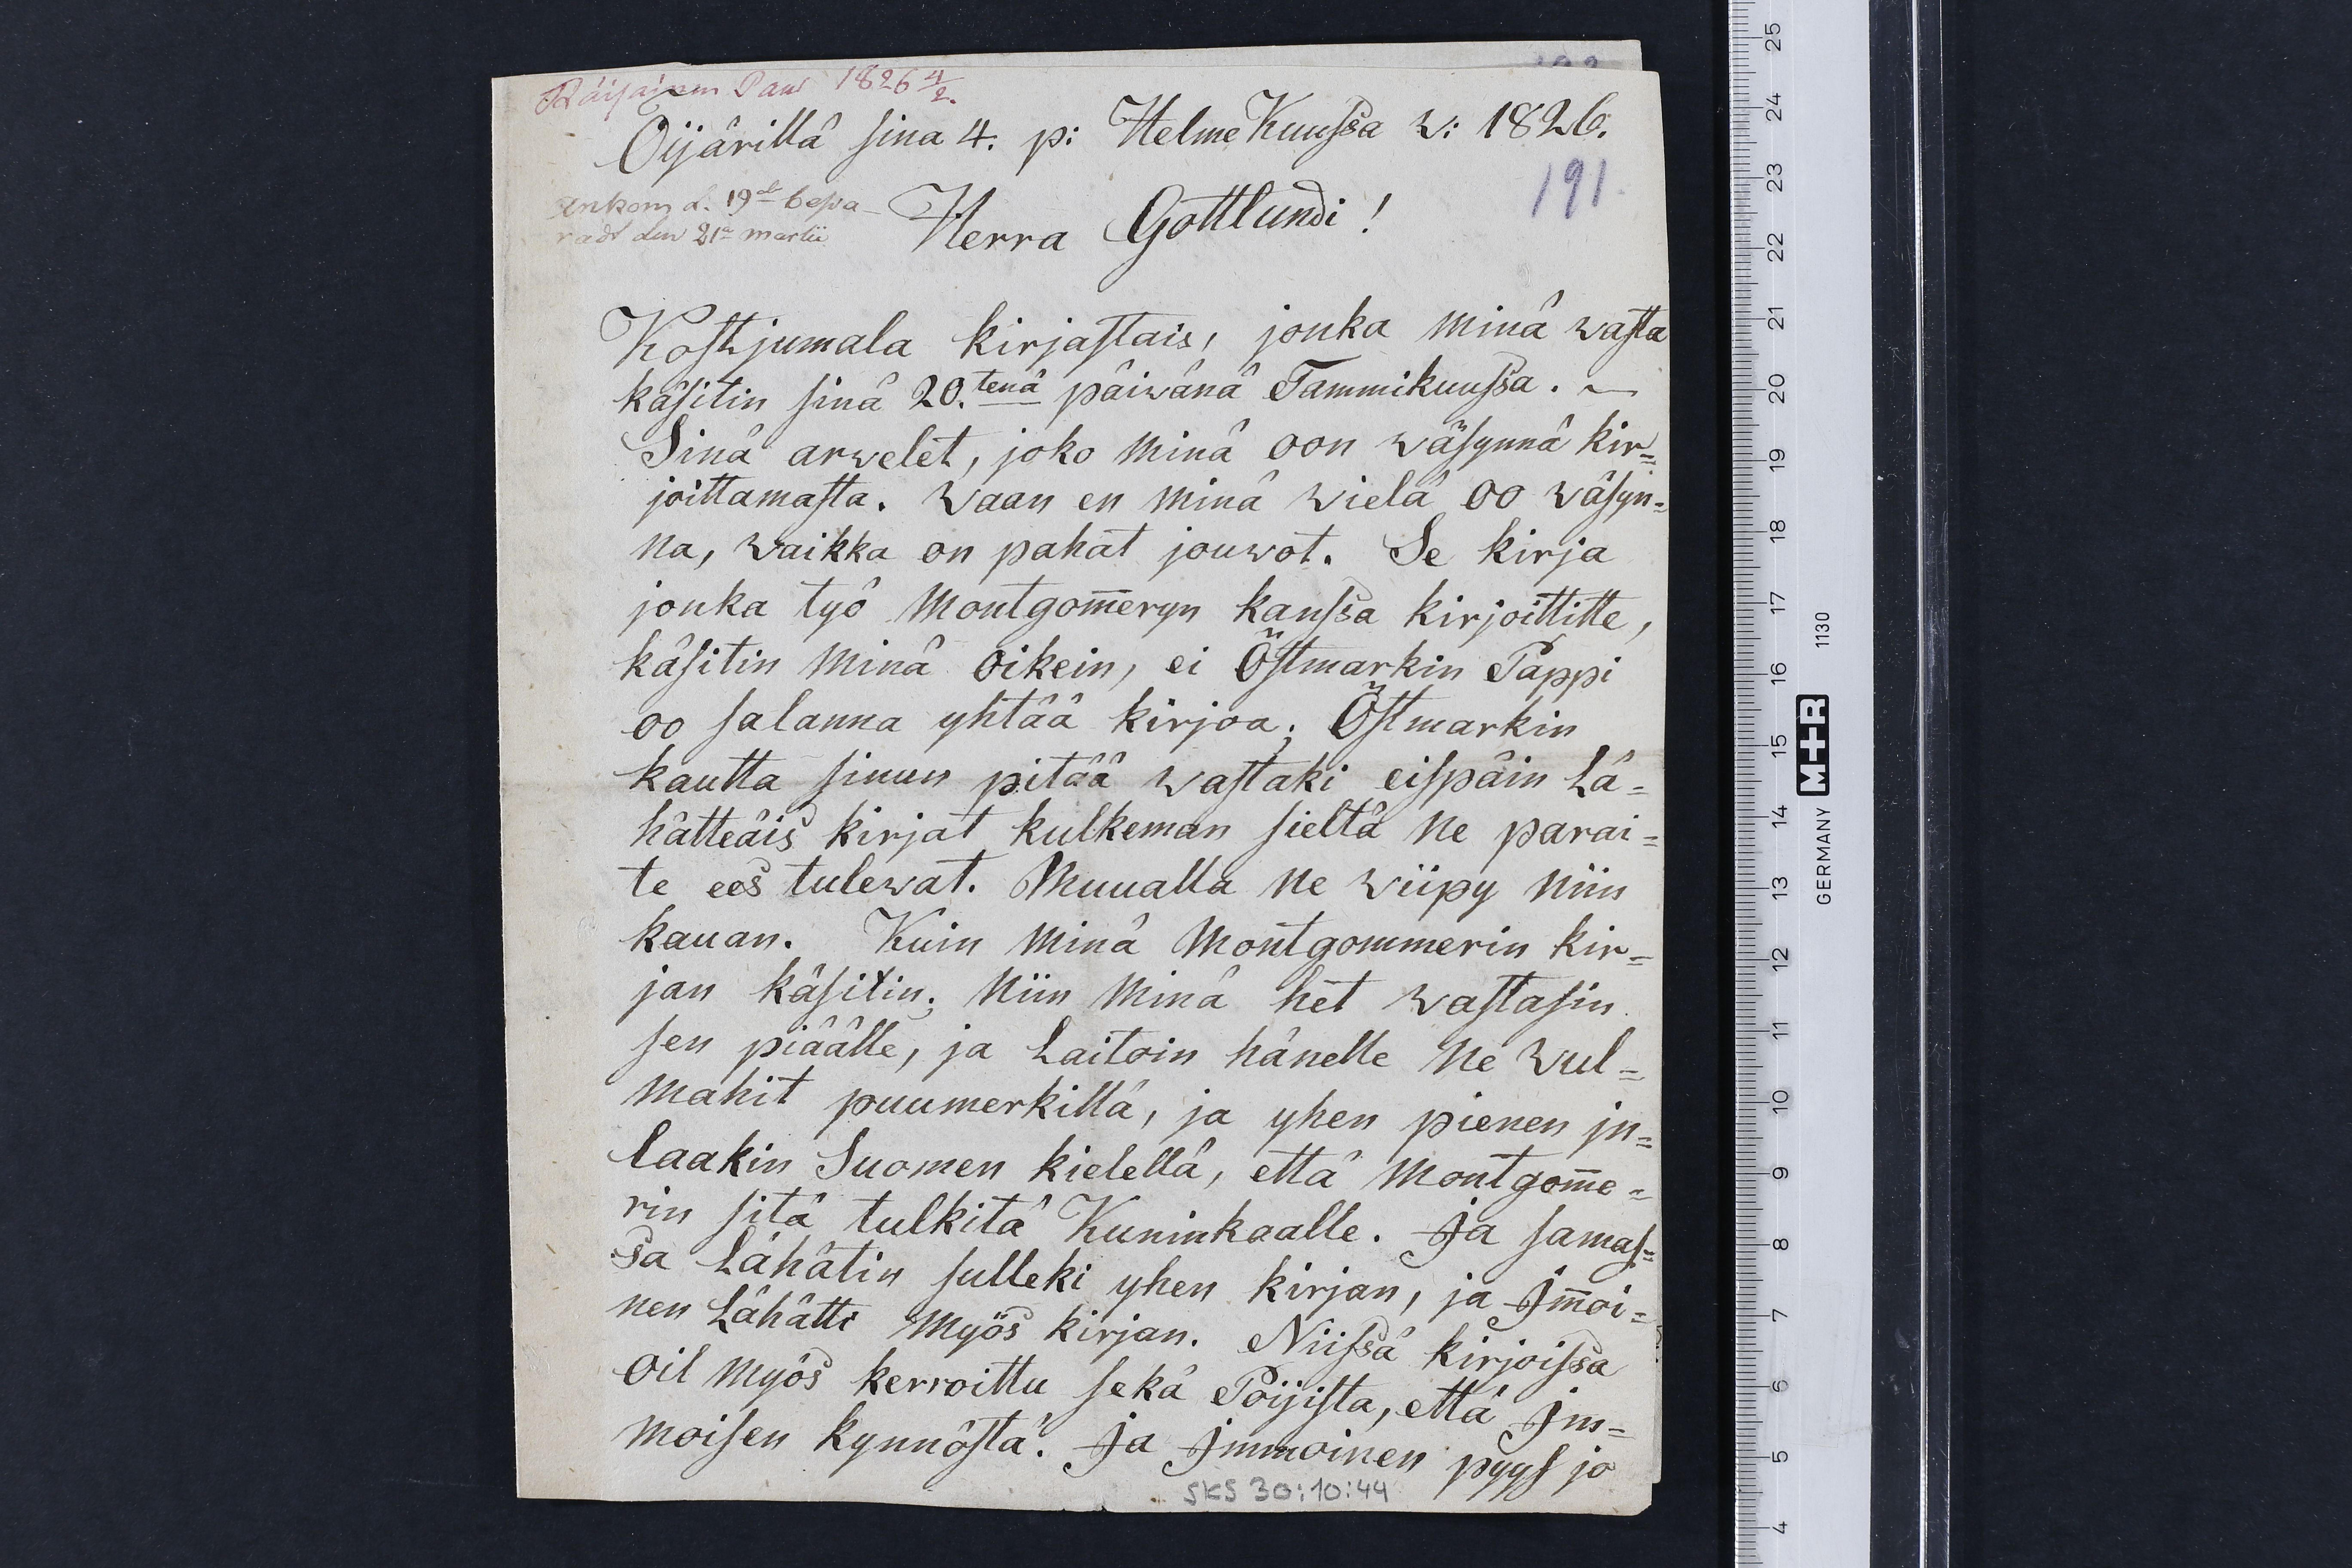 Räisäinen Paul 1826 4/2.
Öijärillä sina 4. p: Helme Kuussa w: 1826.
191
Ankom d. 19de besva-
radt den 21a martii
Herra Gottlundi!
Kostjumala kirjastais, jonka minä wasta
käsitin sinä 20.tenä päiwänä Tammikuussa. ~
Sinä arwelet, joko minä oon wäsynnä kir=
joittamasta. Waan en minä wielä oo wäsyn=
na, waikka on pahat jouwot. Se kirja
jonka työ Montgom̅eryn kanssa kirjoititte,
käsitin minä oikein, ei Östmarkin Pappi
oo salanna yhtää kirjoa. Östmarkin
kautta sinun pitää wastaki eispäin Lä=
hätteäis kirjat kulkeman sieltä ne parai=
te ees tulewat. Muualla ne wiipy niin
kauan. Kuin minä Montgommerin kir=
jan käsitin; niin minä het wastasin
sen piäälle, ja Laitoin hänelle ne wul=
mahit puumerkillä, ja yhen pienen in=
laakin Suomen kielellä, että Montgom̅e=
rin sitä tulkitä Kuninkaalle. Ja samas=
sa Lähätin sulleki yhen kirjan, ja Im̅oi=
nen Lähätti myös kirjan. Niissä kirjoissa
oil myös kerroittu sekä Poijista, että Im=
moisen kynnöstä. Ja Immoinen pyys jo
SKS 30:10:44
25
24
23
22
21
20
19
18
17
16
15
14
13
12
11
10
9
8
7
6
5
4
GERMANY M+R 1130